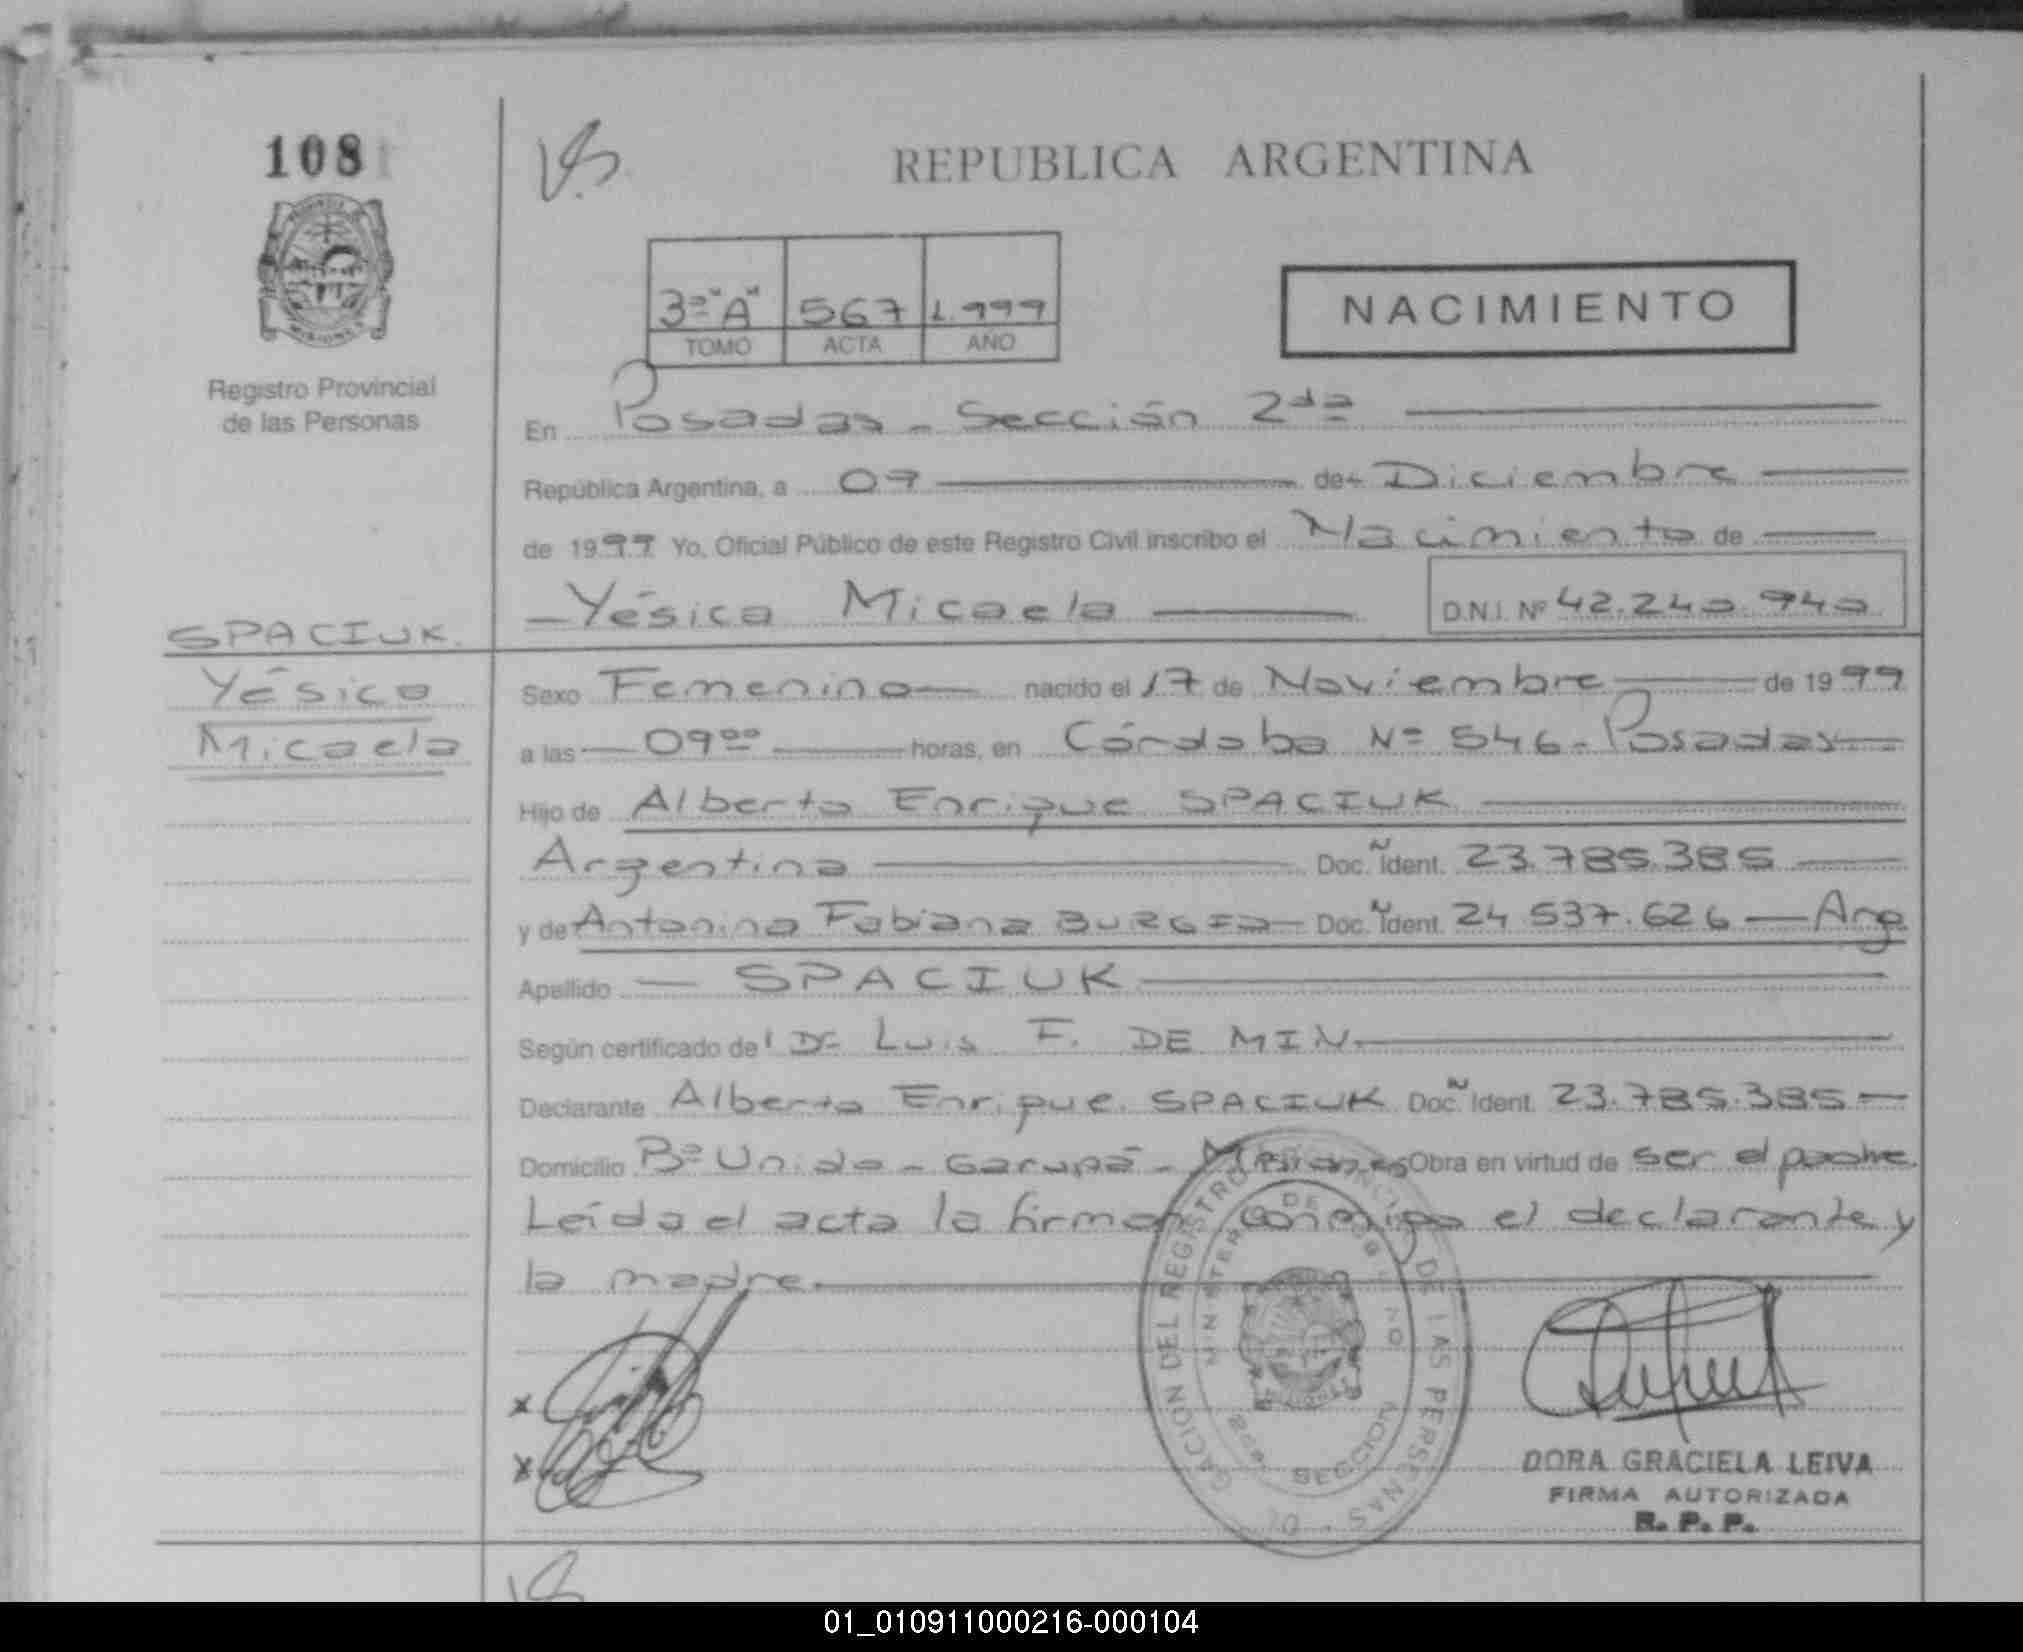 108
REPUBLICA ARGENTINA
3º "A" 567 1.999
TOMO ACTA AÑO
NACIMIENTO
Registro Provincial
de las Personas
En Posadas - Sección 2da
República Argentina, a 07 de Diciembre
de 1999 Yo, Oficial Público de este Registro Civil inscribo el Nacimiento de
Yésica Micaela D.N.I. Nº 42.240.940
SPACIUK.
Yésica
Micaela
Sexo Femenino nacido el 17 de Noviembre de 1999
a las 09ºº horas, en Córdoba Nº 546 - Posadas
Hijo de Alberto Enrique SPACIUK
Argentina Doc. Ident. 23.785.385
y de Antonina Fabiana Doc. Ident. 24.537.626 - Arg
Apellido SPACIUK
Según certificado del Dr. Luis F. DE MIN.
Declarante Alberto Enrique SPACIUK Doc. Ident. 23.785.385
Domicilio Bº Unido - Garupá - Misiones Obra en virtud de ser el padre.
Leída el acta la firman conmigo el declarante y
la madre.
DELEGACION DEL REGISTRO PROVINCIAL DE LAS PERSONAS
MINISTERIO DE GOBIERNO
SECCION
DORA GRACIELA LEIVA
FIRMA AUTORIZADA
R. P. P.
01_010911000216-000104